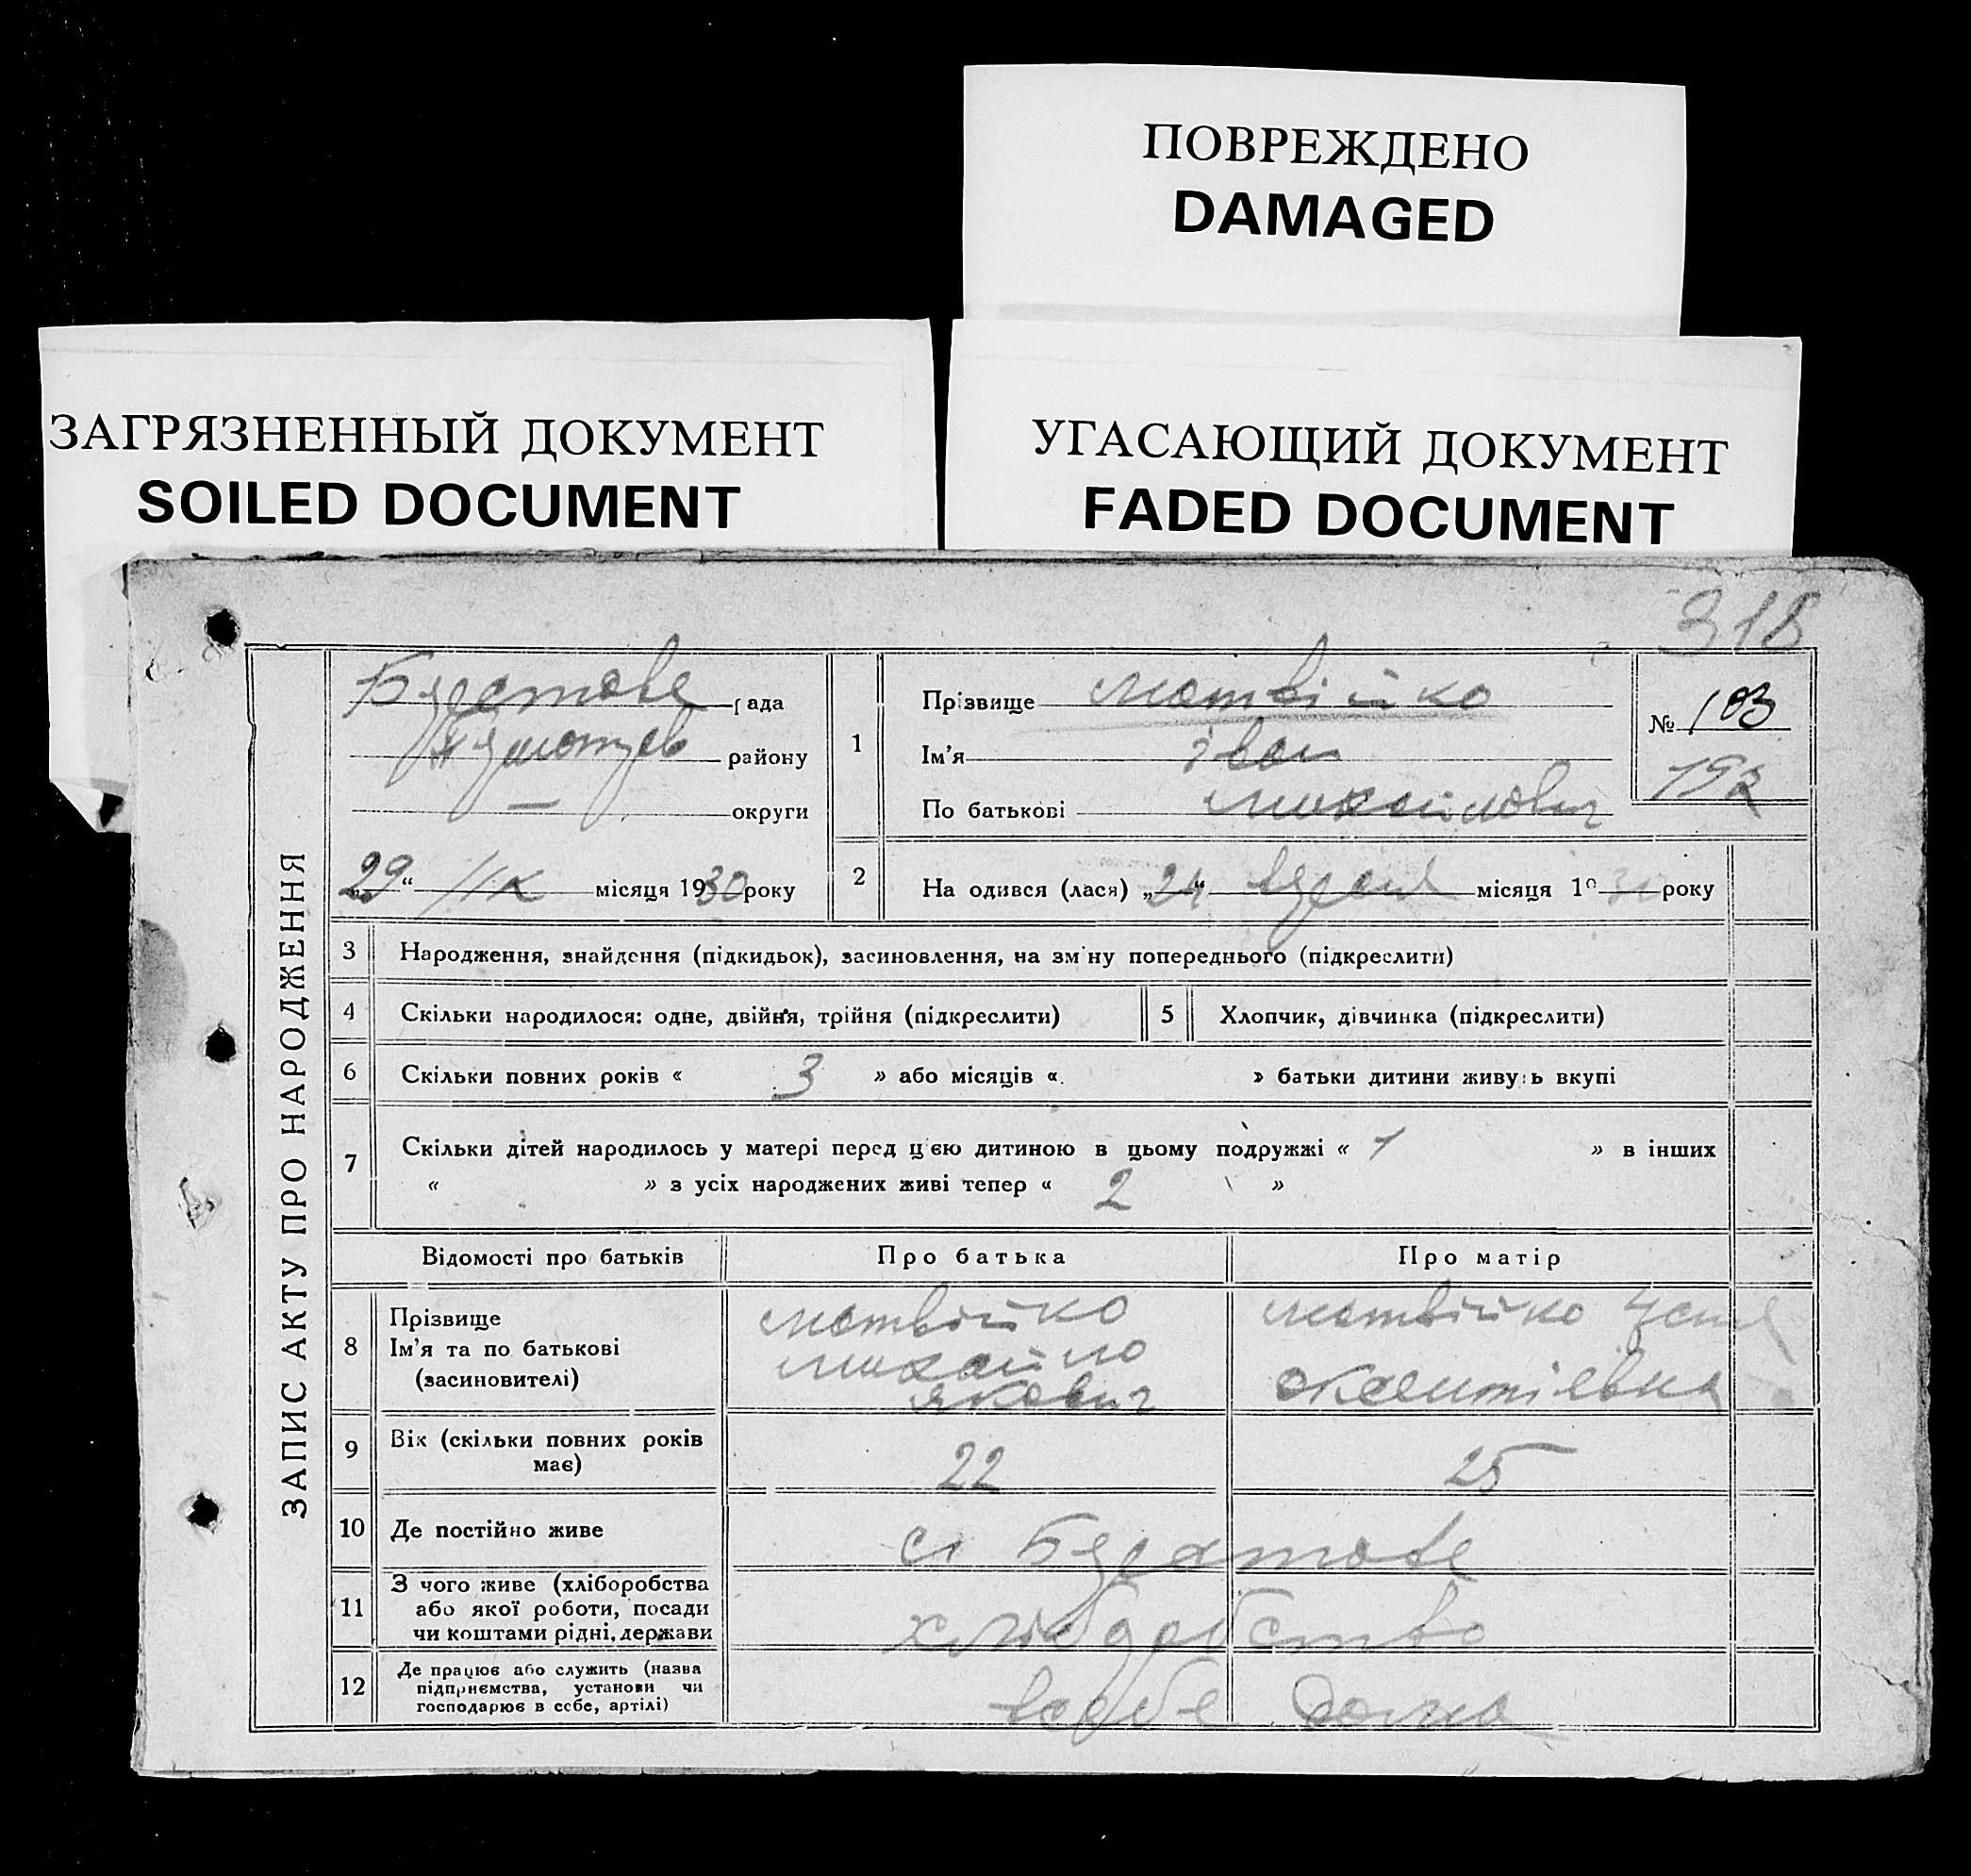 ПОВРЕЖДЕНО
DAMAGED
ЗАГРЯЗНЕННЫЙ ДОКУМЕНТ
SOILED DOCUMENT
УГАСАЮЩИЙ ДОКУМЕНТ
FADED DOCUMENT
318
ЗАПИС АКТУ ПРО НАРОДЖЕННЯ
рада
району
— округи
„29“ ІХ місяця 1930 року
1
Прізвище Матвійко
Ім'я Іван
По батькові Михайлович
№ 103
192
2 На одився (лася) „24“ вересня місяця 19 30 року
3 Народження, знайдення (підкидьок), засиновлення, на зм ну попереднього (підкреслити)
4 Скільки народилося: одне, двійня, трійня (підкреслити)
5 Хлопчик, дівчинка (підкреслити)
6 Скільки повних років « 3 » або місяців « » батьки дитини живуть вкупі
7 Скільки дітей народилось у матері перед цією дитиною в цьому подружжі « 1 » в інших
« » з усіх народжених живі тепер « 2 »
Відомості про батьків Про батька Про матір
8 Прізвище
Ім'я та по батькові
(засиновителі)
Матвійко
Михайло
Якович
Матвійко
9 Вік (скільки повних років
має)
22 25
10 Де постійно живе
с.
11 З чого живе (хліборобства
або якої роботи, посади
чи коштами рідні, держави
хліборобство
12 Де працює або служить (назва
підприємства, установи чи
господарює в себе, артілі)
в себе дома